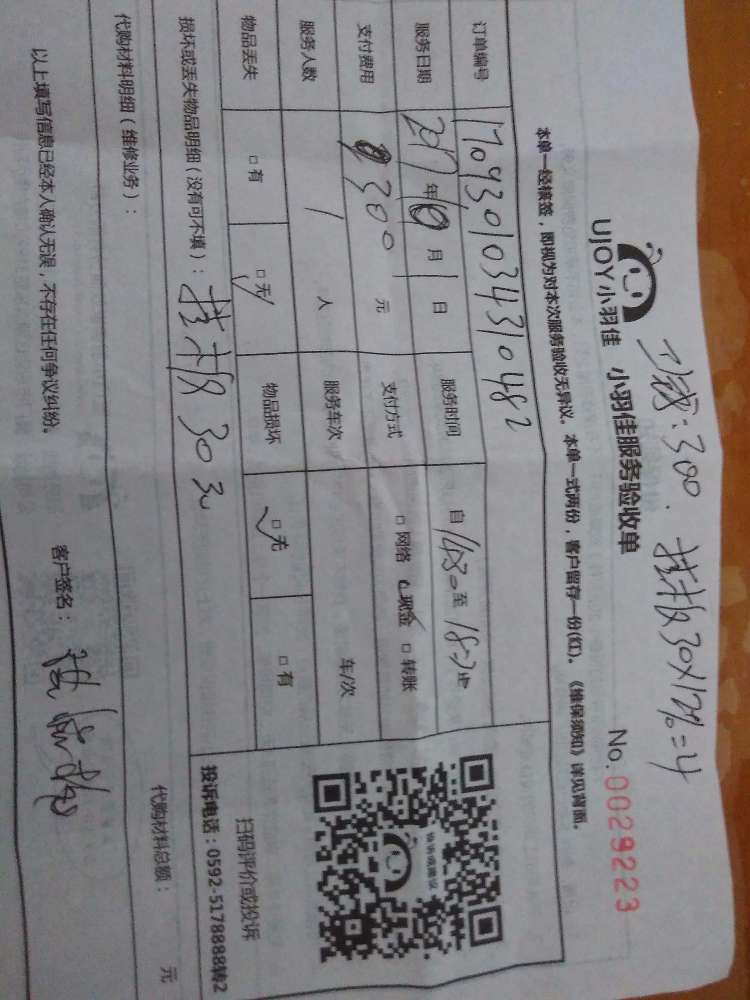 300. 挂板30×12%=4
UJOY小羽佳 小羽佳服务验收单 No.0029223
本单一经核签，即视为对本次服务验收无异议。本单一式两份，客户留存一份(红)。《维保须知》详见背面。
订单编号 1709301034310482
服务日期 2017年10月1日 服务时间 自1430至
支付费用 300元 支付方式 □网络 现金 □转账
服务人数 1人 服务车次 车/次
物品丢失 □有 □无 物品损坏 □无 □有
损坏或丢失物品明细（没有可不填）：挂板30元
代购材料明细（维修业务）：
代购材料总额： 元
以上填写信息已经本人确认无误，不存在任何争议纠纷。 客户签名：
投诉或建议
扫码评价或投诉
投诉电话：0592-5178888转2